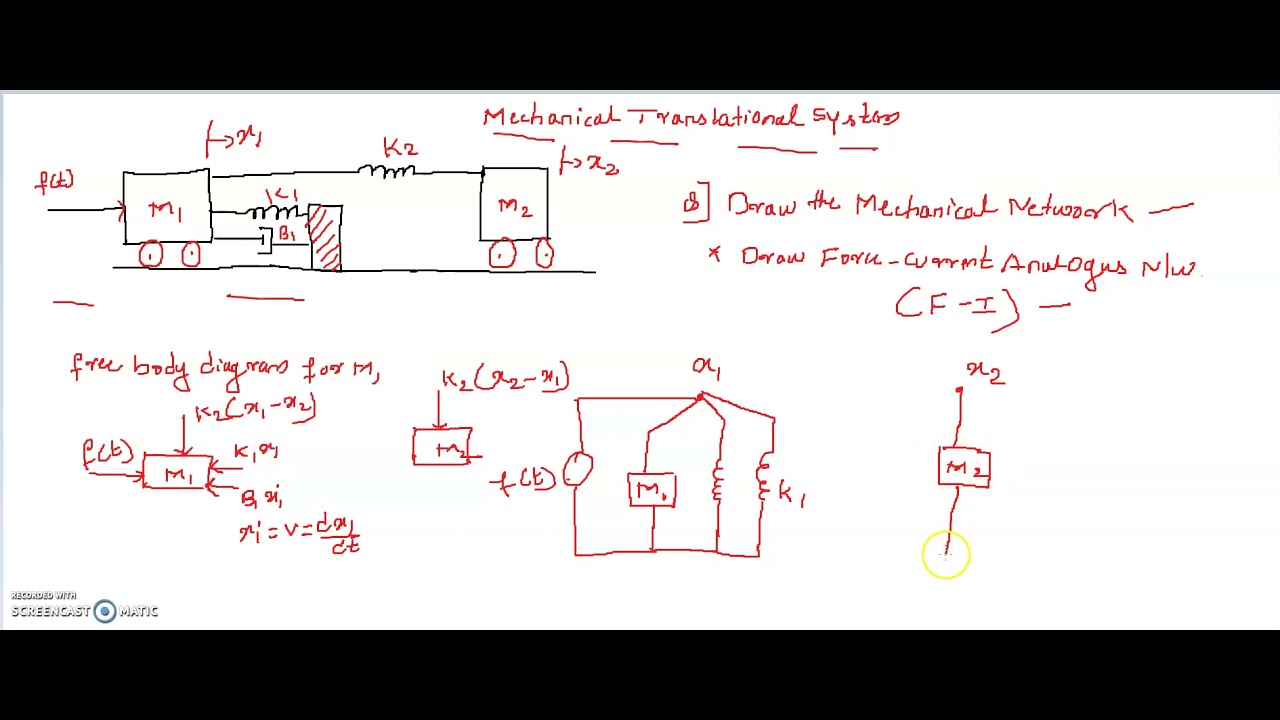 Mechanical Translational System
x1
K2
x2
f(t)
M1
K1
B1
M2
Q] Draw the Mechanical Network —
* Draw Force-Current Analogus N/w
(F-I) —
free body diagram for M1
K2(x1-x2)
f(t)
M1
K1x1
B1ẋ1
ẋ1 = v = dx1/dt
K2(x2-x1)
M2
x1
f(t)
M1
K1
x2
M2
RECORDED WITH
SCREENCAST MATIC